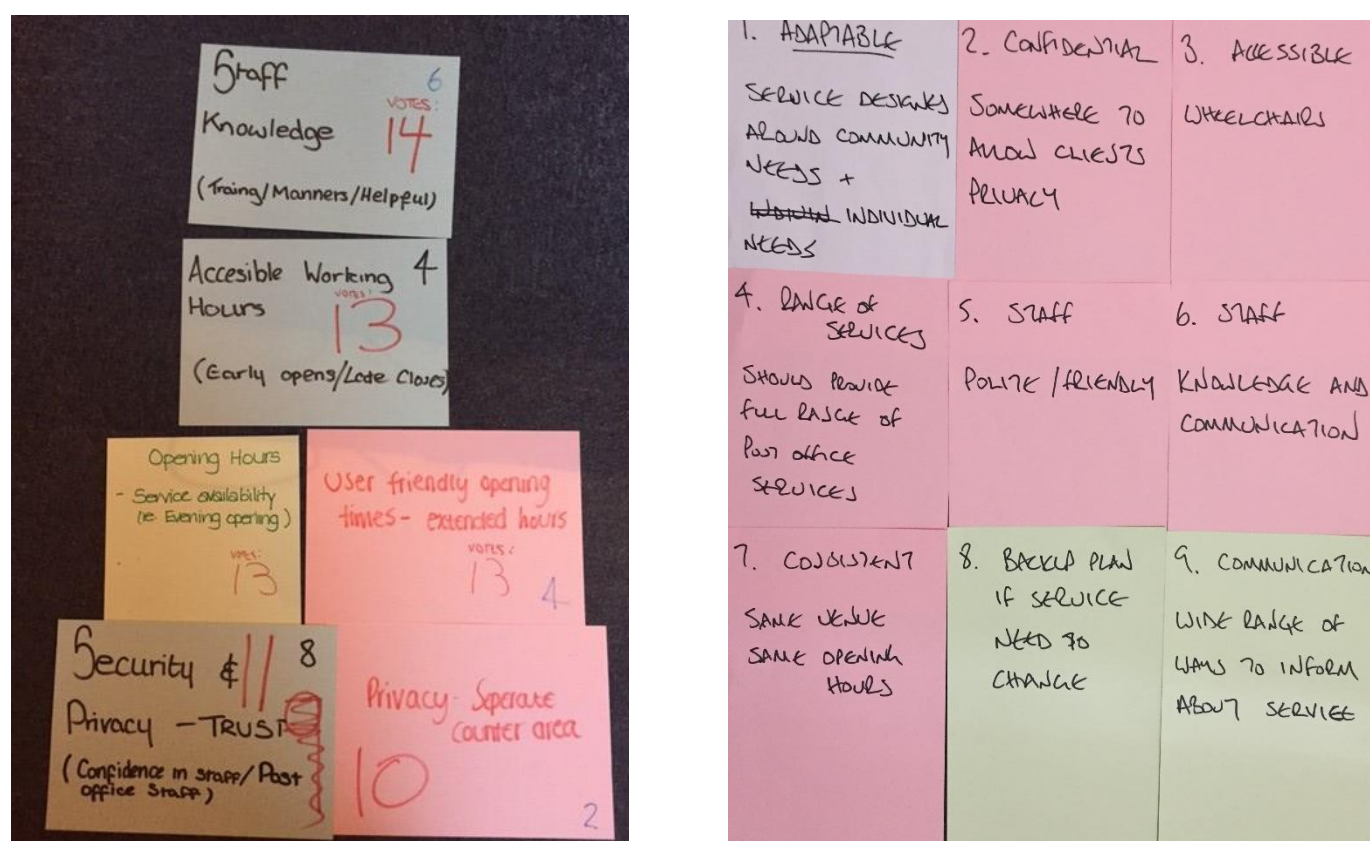 Staff 6
VOTES:
Knowledge 14
(Traing/Manners/Helpful)
Accesible Working 4
Hours VOTES:
13
(Early opens/Late Closes)
Opening Hours
- Service availability
(ie Evening opening)
VOTES:
13
User friendly opening
times - extended hours
VOTES:
13 4
Security & 11 8
Privacy - TRUST
(Confidence in staff/Post
office Staff)
Privacy - Seperate
counter area
10
2
1. ADAPTABLE
SERVICE DESIGNED
AROUND COMMUNITY
NEEDS +
INDIVIDUAL
NEEDS
2. CONFIDENTIAL
SOMEWHERE TO
ALLOW CLIENTS
PRIVACY
3. ACCESSIBLE
WHEELCHAIRS
4. RANGE OF
SERVICES
SHOULD PROVIDE
FULL RANGE OF
POST OFFICE
SERVICES
5. STAFF
POLITE / FRIENDLY
6. STAFF
KNOWLEDGE AND
COMMUNICATION
7. CONSISTENT
SAME VENUE
SAME OPENING
HOURS
8. BACKUP PLAN
IF SERVICE
NEED TO
CHANGE
9. COMMUNICATION
WIDE RANGE OF
WAYS TO INFORM
ABOUT SERVICE